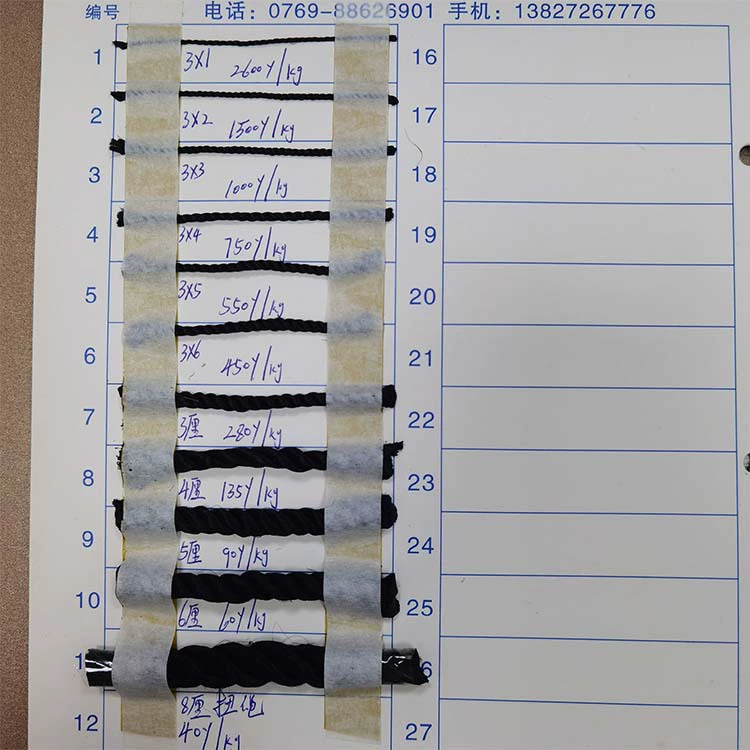 编号 电话：0769-88626901 手机：13827267776
1 16
3X1 2600Y/kg
2 17
3X2 1500Y/kg
3 18
3X3 1000Y/kg
4 19
3X4 750Y/kg
5 20
3X5 550Y/kg
6 21
3X6 450Y/kg
7 22
3厘 280Y/kg
8 23
4厘 135Y/kg
9 24
5厘 90Y/kg
10 25
6厘 60Y/kg
1 6
8厘 扭绳
12 27
40Y/kg